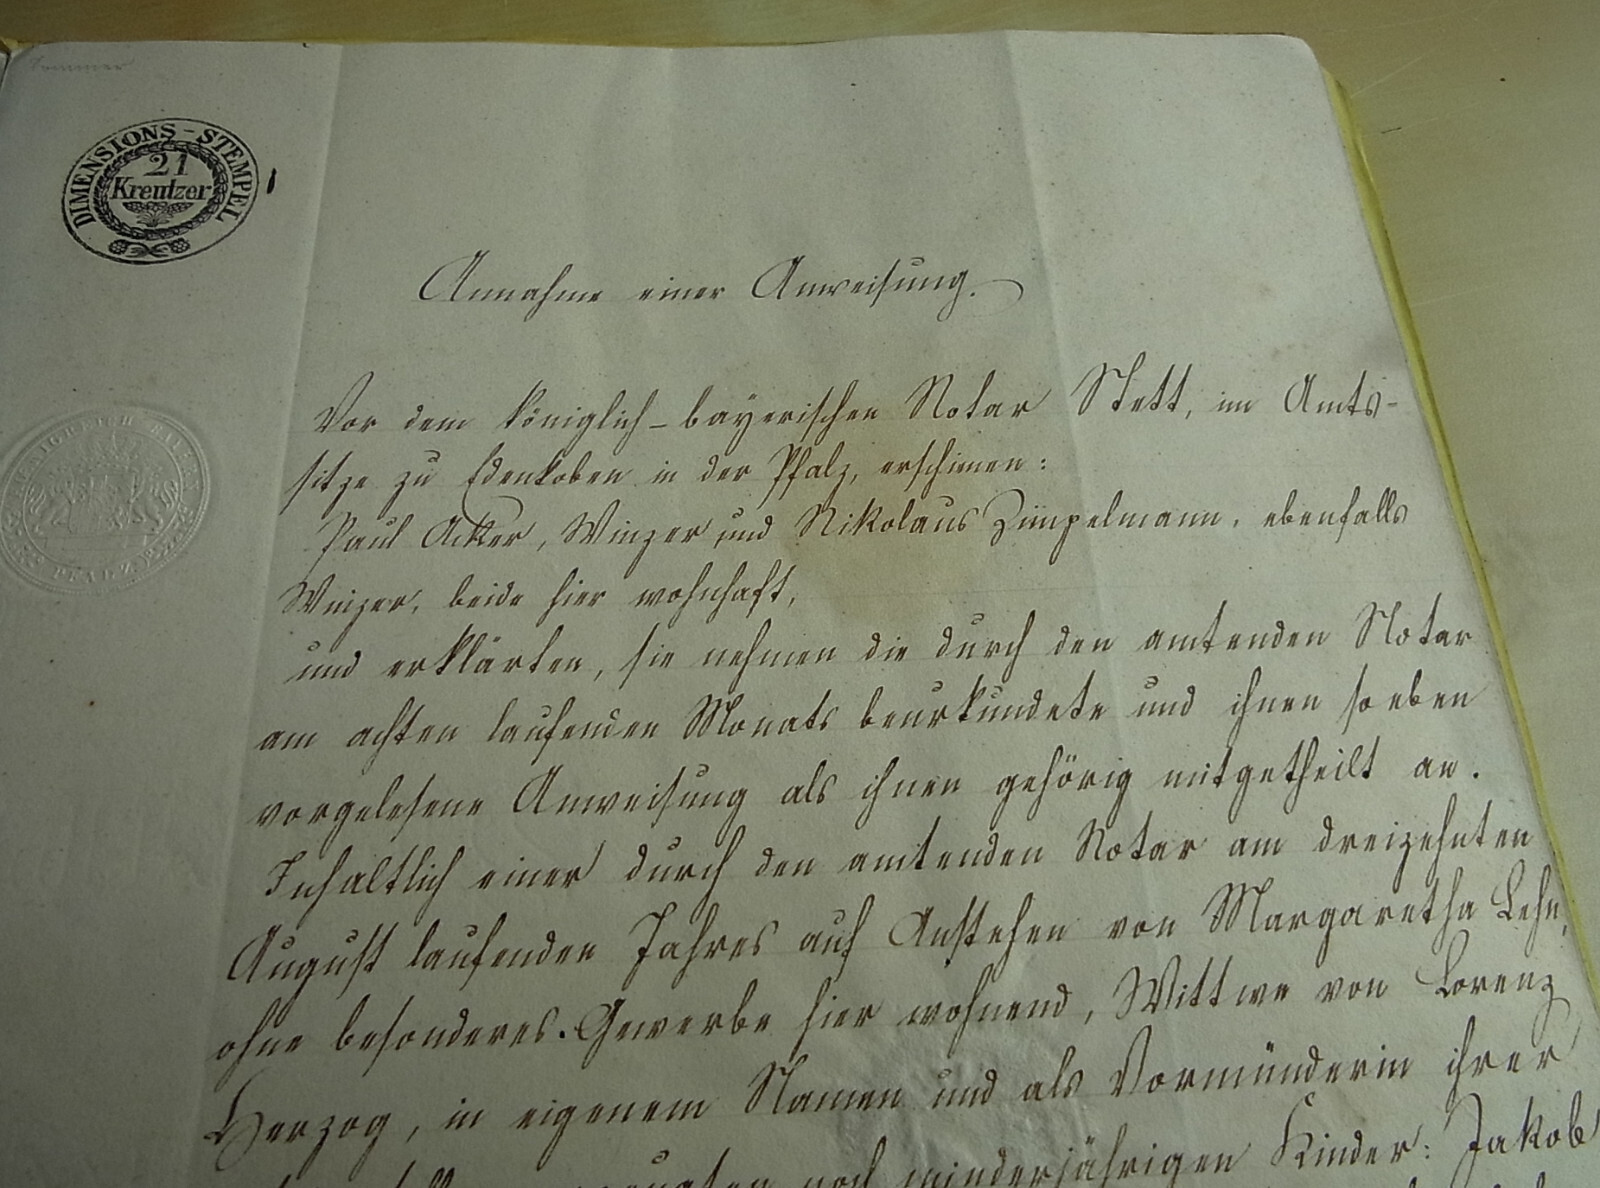 DIMENSIONS-STEMPEL
21
Kreutzer
KOENIGREICH BAIERN
PFALZ
Annahme einer Anweisung.
Vor dem königlich-bayerischen Notar Stett, im Amts-
sitze zu Edenkoben in der Pfalz, erschienen:
Paul Acker, Winzer und Nikolaus Zümpelmann, ebenfalls
Winzer, beide hier wohnhaft,
und erklärten, sie nehmen die durch den amtenden Notar
am achten laufenden Monats beurkundete und ihnen soeben
vorgelesene Anweisung als ihnen gehörig mitgetheilt an.
Inhaltlich einer durch den amtenden Notar am dreizehnten
August laufenden Jahres auf Anstehen von Margaretha Lehn,
ohne besonderes Gewerbe hier wohnend, Wittwe von Lorenz
Herzog, in eigenem Namen und als Vormünderin ihrer
noch minderjährigen Kinder: Jakob